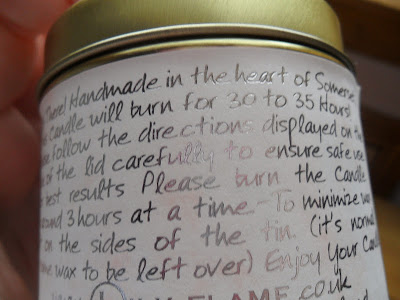 There! Handmade in the heart of Somerse
Candle will burn for 30 to 35 Hours!
follow the directions displayed on
of the lid carefully to ensure safe use
best results Please burn the Candle
3 hours at a time - To minimize
on the sides of the tin. (it's normal
wax to be left over) Enjoy Your
FLAME.co.uk